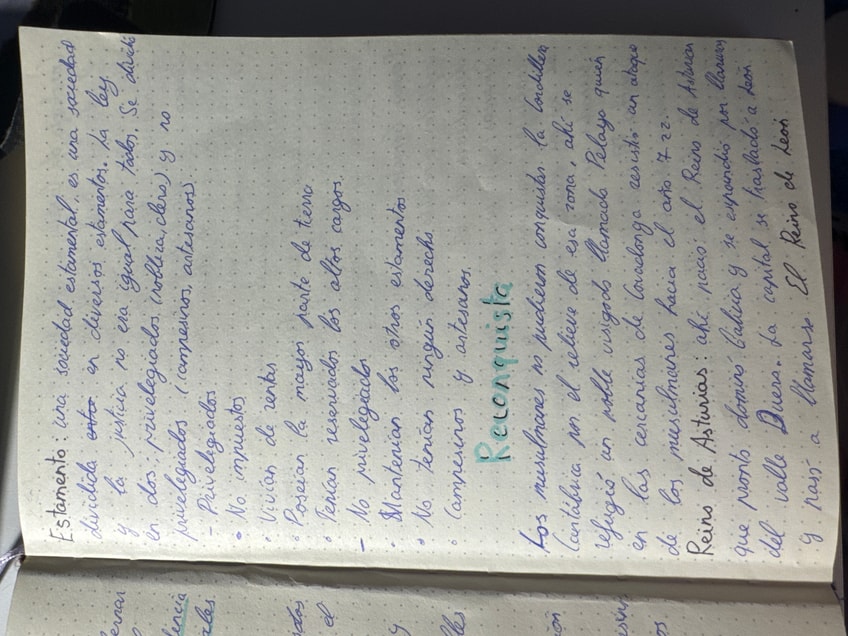 Estamento: una sociedad estamental, es una sociedad
dividida entre en diversos estamentos. La ley
y la justicia no era igual para todos. Se dividía
en dos: privilegiados (nobleza, clero) y no
privilegiados (campesinos, artesanos):
- Privilegiados
• No impuestos
• Vivían de rentas
• Poseían la mayor parte de tierra
• Tenían reservados los altos cargos.
- No privilegiados
• Mantenían los otros estamentos
• No tenían ningún derecho.
• Campesinos y artesanos.
Reconquista
Los musulmanes no pudieron conquistar la Cordillera
Cantábrica por el relieve de esa zona, ahí se
refugió un noble visigodo llamado Pelayo quien
en las cercanías de Covadonga resistió un ataque
de los musulmanes hacia el año 722.
Reino de Asturias: ahí nació el Reino de Asturias
que pronto dominó Galicia y se expandió por llanuras
del valle Duero. La capital se trasladó a León
y pasó a llamarse El Reino de León
ales.
el
y